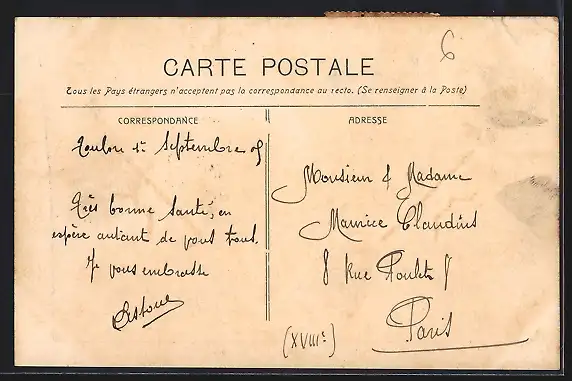 6
CARTE POSTALE
Tous les Pays étrangers n'acceptent pas la correspondance au recto. (Se renseigner à la Poste)
CORRESPONDANCE
ADRESSE
Toulon Septembre 05
Monsieur & Madame
Très bonne santé, en
Maurice Claudius
espère autant de vous tous.
8 Rue Poulet 8
Je vous embrasse
Paris
(XVIIIe)